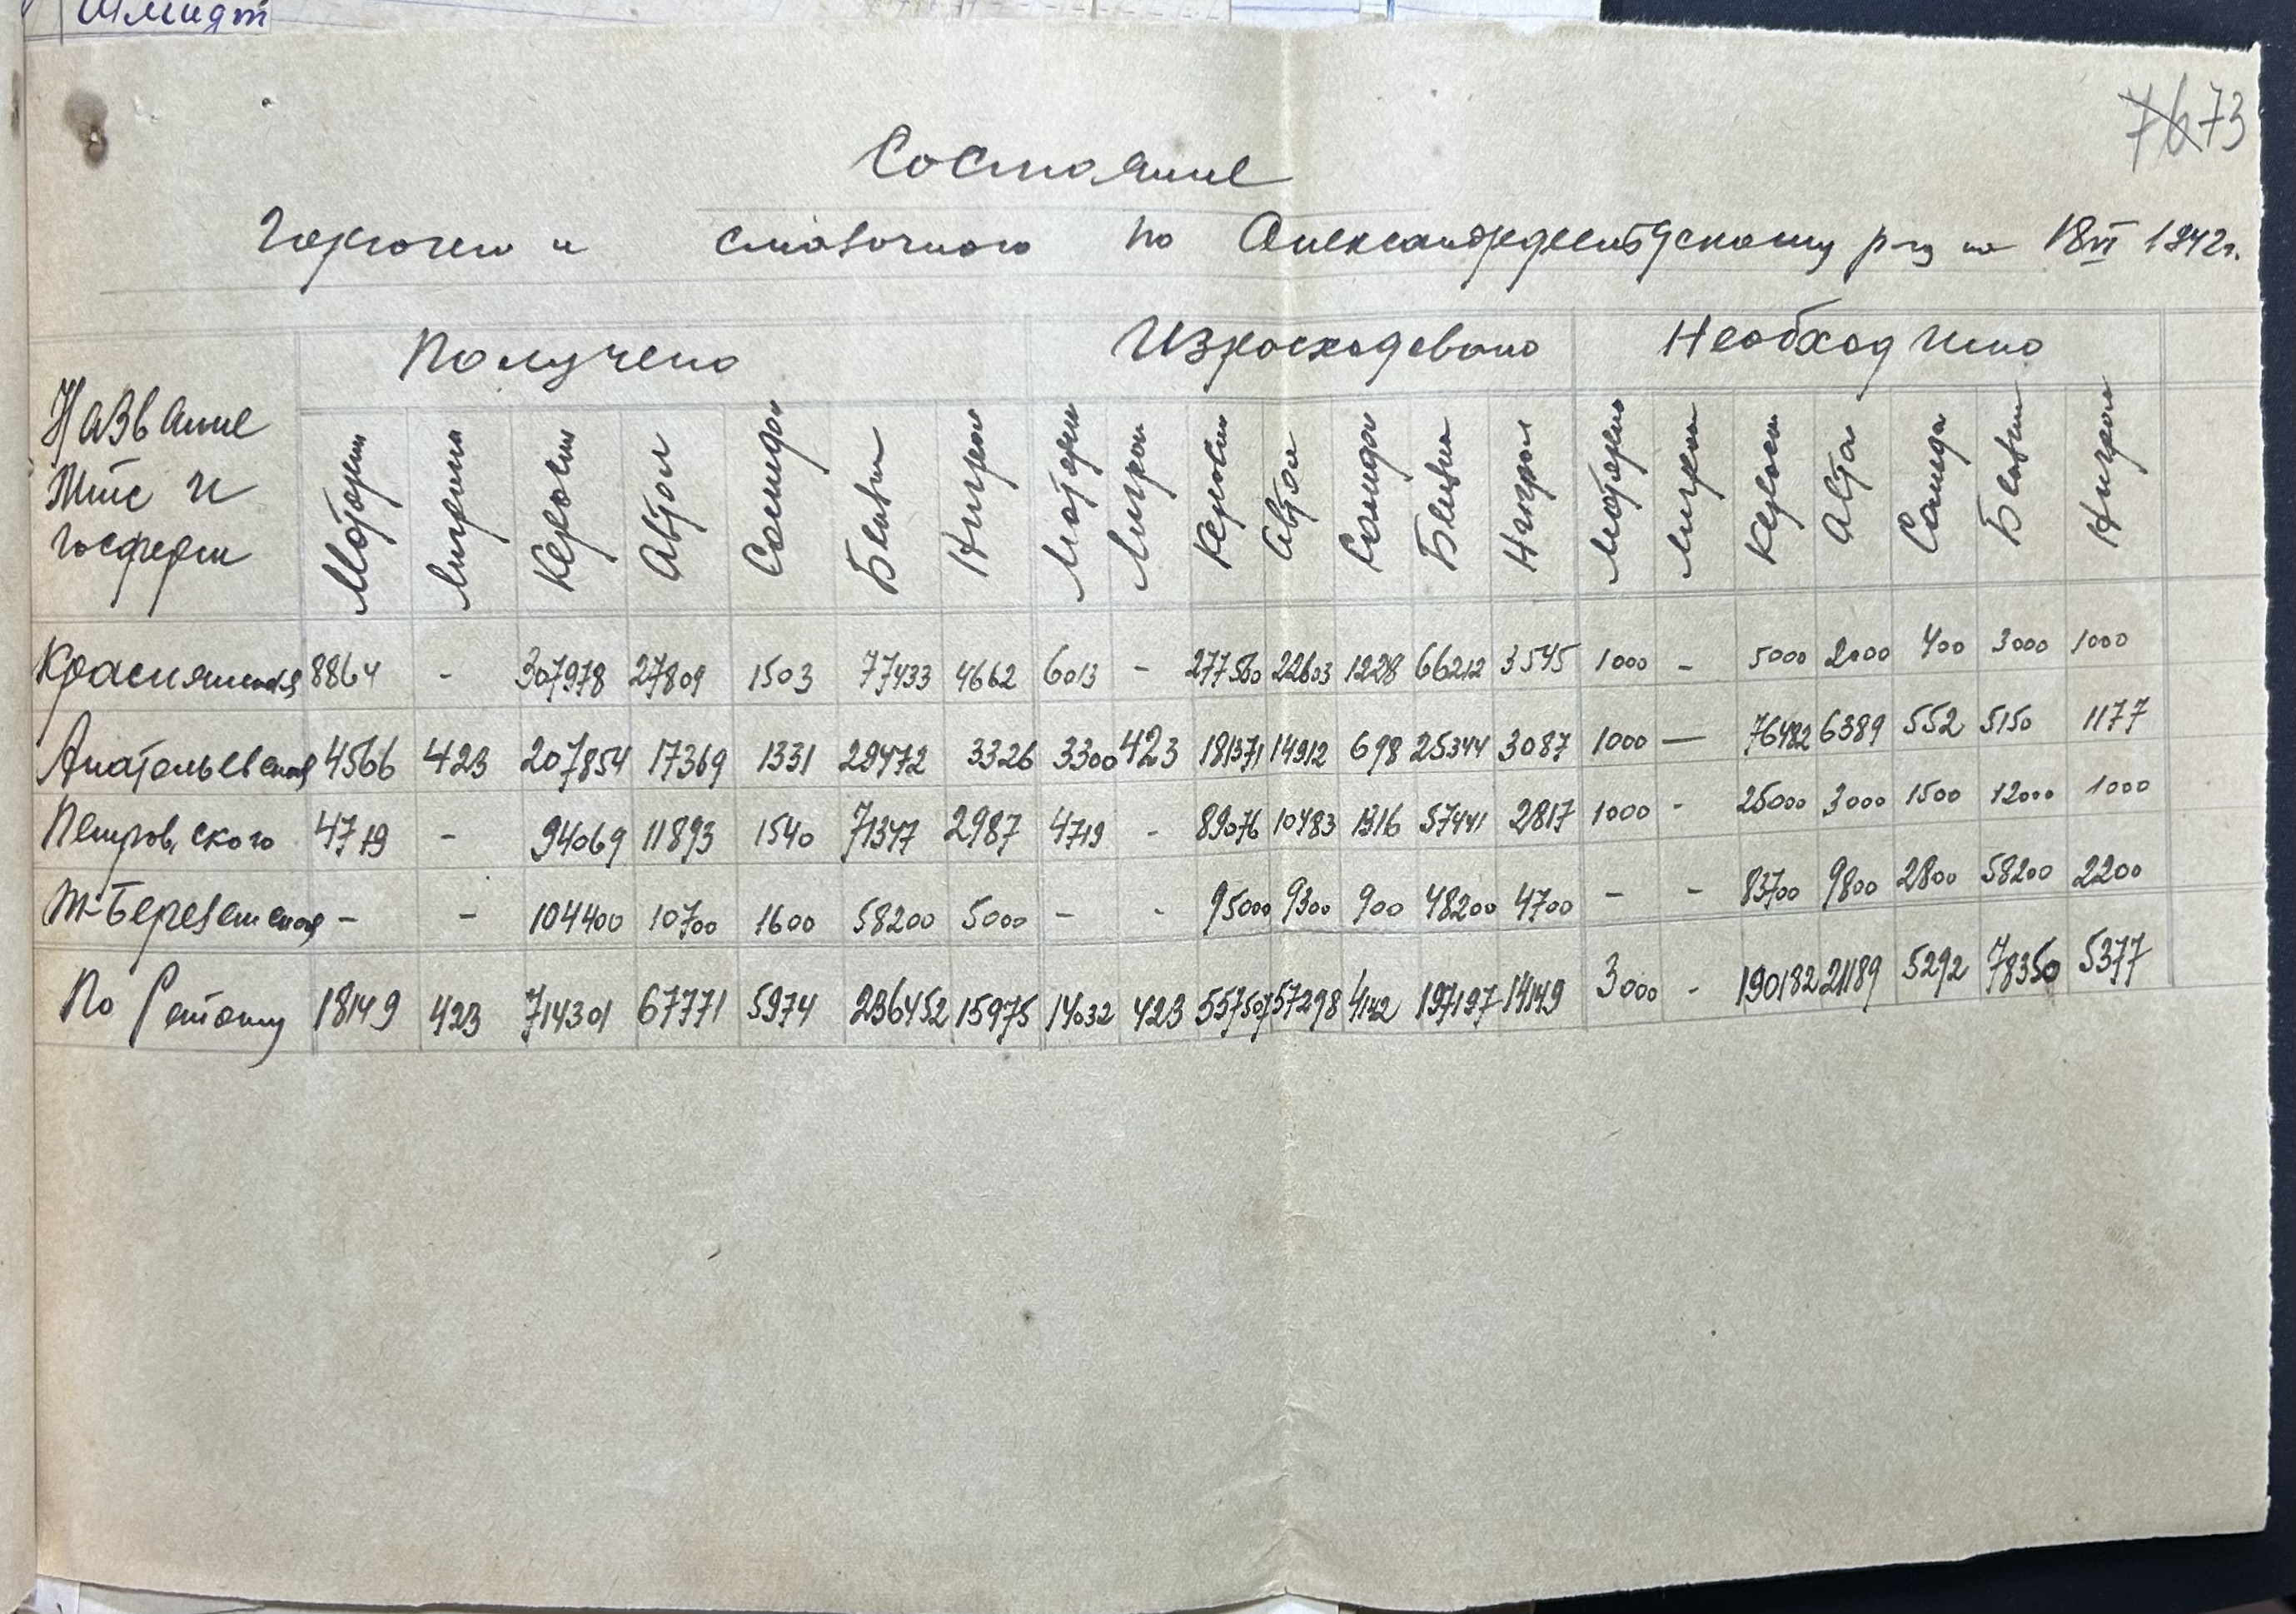 Шмидт
76 73
Состояние
Горючего и смазочного по Александрфельдскому р-ну на 18 VI 1942г.
Название Мтс и госферм | Получено | Израсходовано | Необходимо
Моторин | Лигроин | Керосин | Автол | Солидол | Бензин | Нигрол | Моторин | Лигроин | Керосин | Автол | Солидол | Бензин | Нигрол | Моторин | Лигроин | Керосин | Автол | Солидол | Бензин | Нигрол
Краснянская 8864 - 307978 27809 1503 77433 4662 6013 - 277560 22603 1228 66212 3545 1000 - 5000 2000 400 3000 1000
Анатольевская 4566 423 207854 17369 1331 29472 3326 3300 423 181371 14912 698 25344 3087 1000 — 76482 6389 552 5150 1177
Петровского 4719 - 94069 11893 1540 71347 2987 4719 - 89076 10483 1316 57441 2817 1000 - 25000 3000 1500 12000 1000
Т-Березанская - - 104400 10700 1600 58200 5000 - - 95000 9300 900 48200 4700 - - 83700 9800 2800 58200 2200
По Району 18149 423 714301 67771 5974 236452 15975 14032 423 557507 57298 4142 197197 14149 3000 - 190182 21189 5292 78350 5377